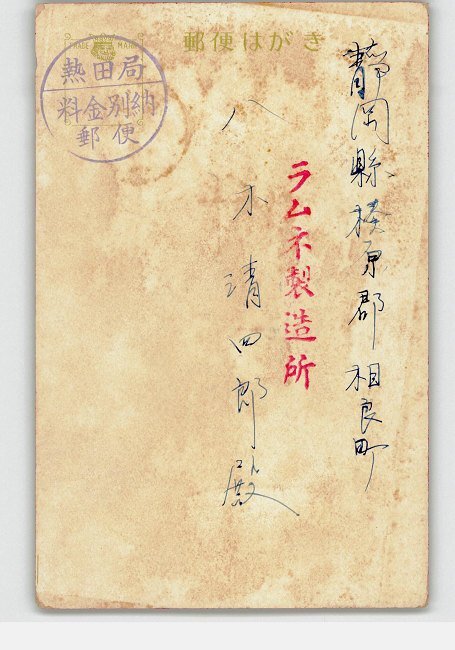 郵便はがき
TRADE MARK
熱田局
料金別納
郵便
静岡縣榛原郡相良町
ラムネ製造所
八木清四郎殿